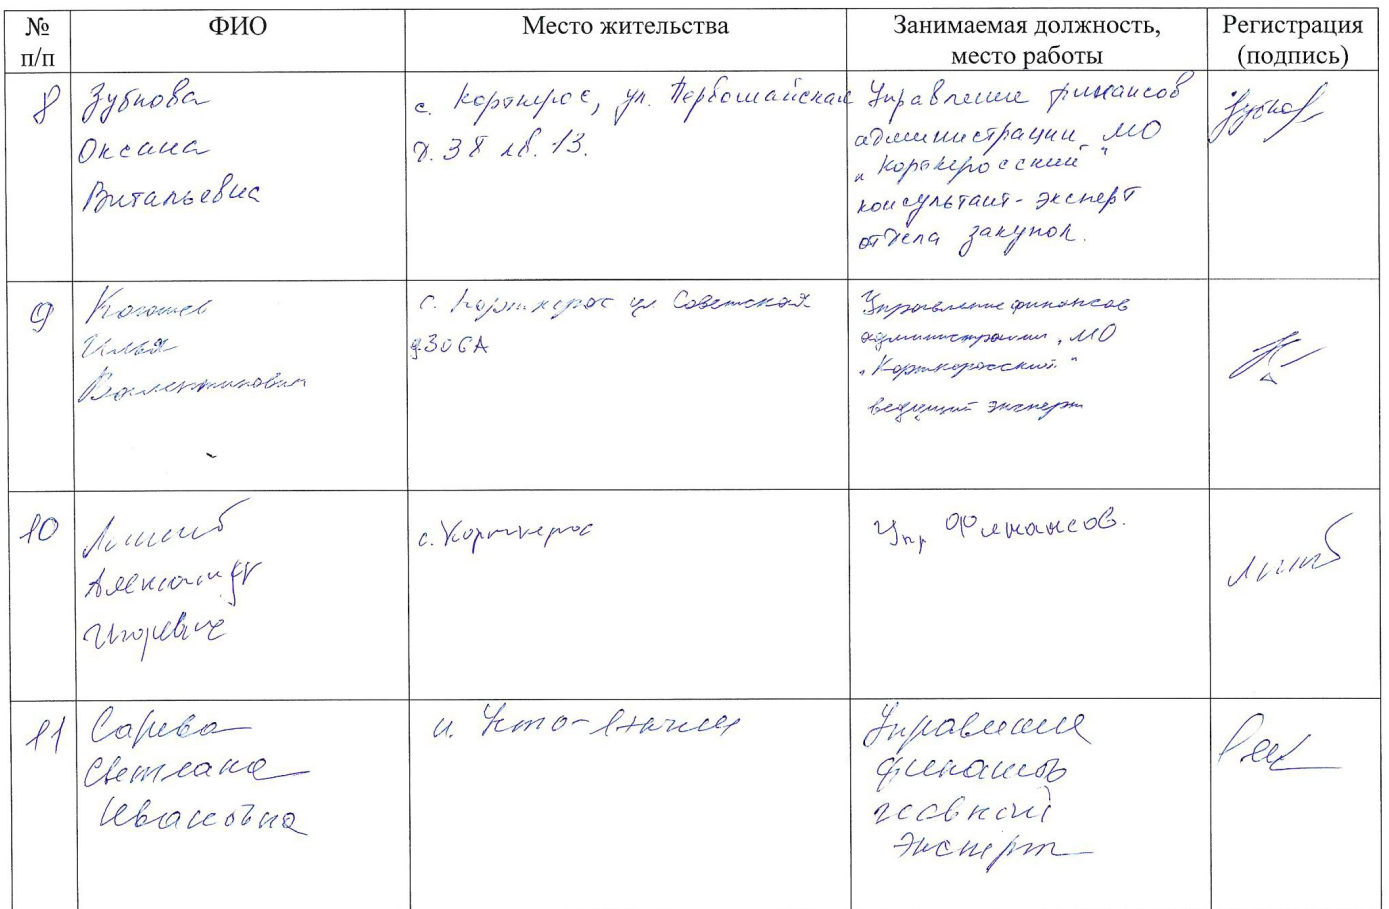 № п/п
ФИО
Место жительства
Занимаемая должность, место работы
Регистрация (подпись)
8
Зубкова
Оксана
Витальевна
с. Корткерос, ул. Первомайская
д. 38 кв. 13.
Управление финансов
администрации МО
"Корткеросский"
консультант-эксперт
отдела закупок.
9
Илья
Валентинович
с. Корткерос ул Советская
д306А
Управление финансов
администрации МО
"Корткеросский"
ведущий эксперт
10
Александр
Игоревич
с. Корткерос
Упр Финансов.
11
Светлана
Ивановна
Управление
финансов
главный
эксперт